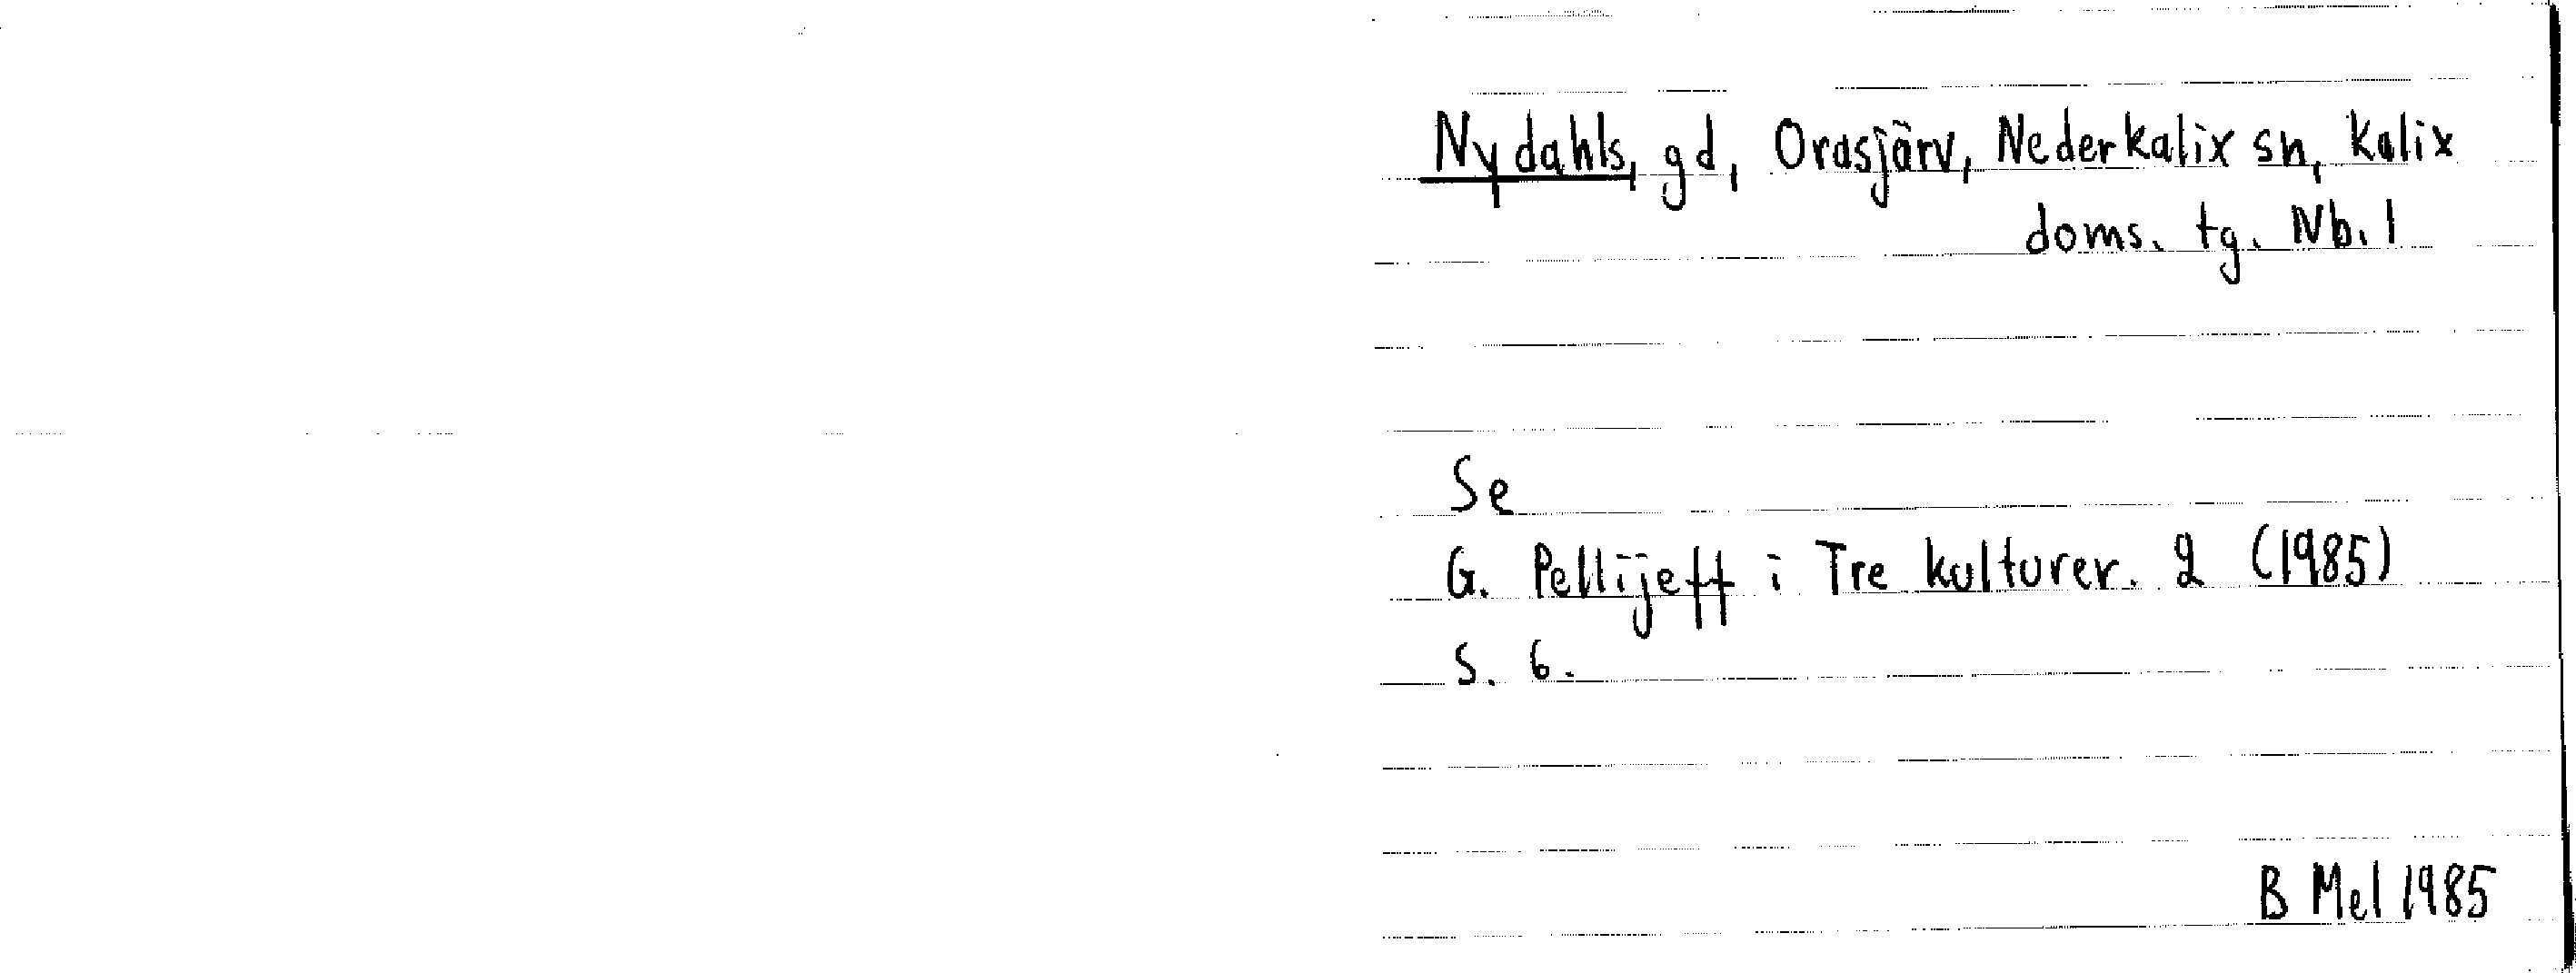 Nydahls, gd, Orasjärv, Nederkalix sn, Kalix
doms. tg. Nb. l
Se
G. Pellijeff i Tre kulturer. 2 (1985)
S. 6.
B Mel 1985